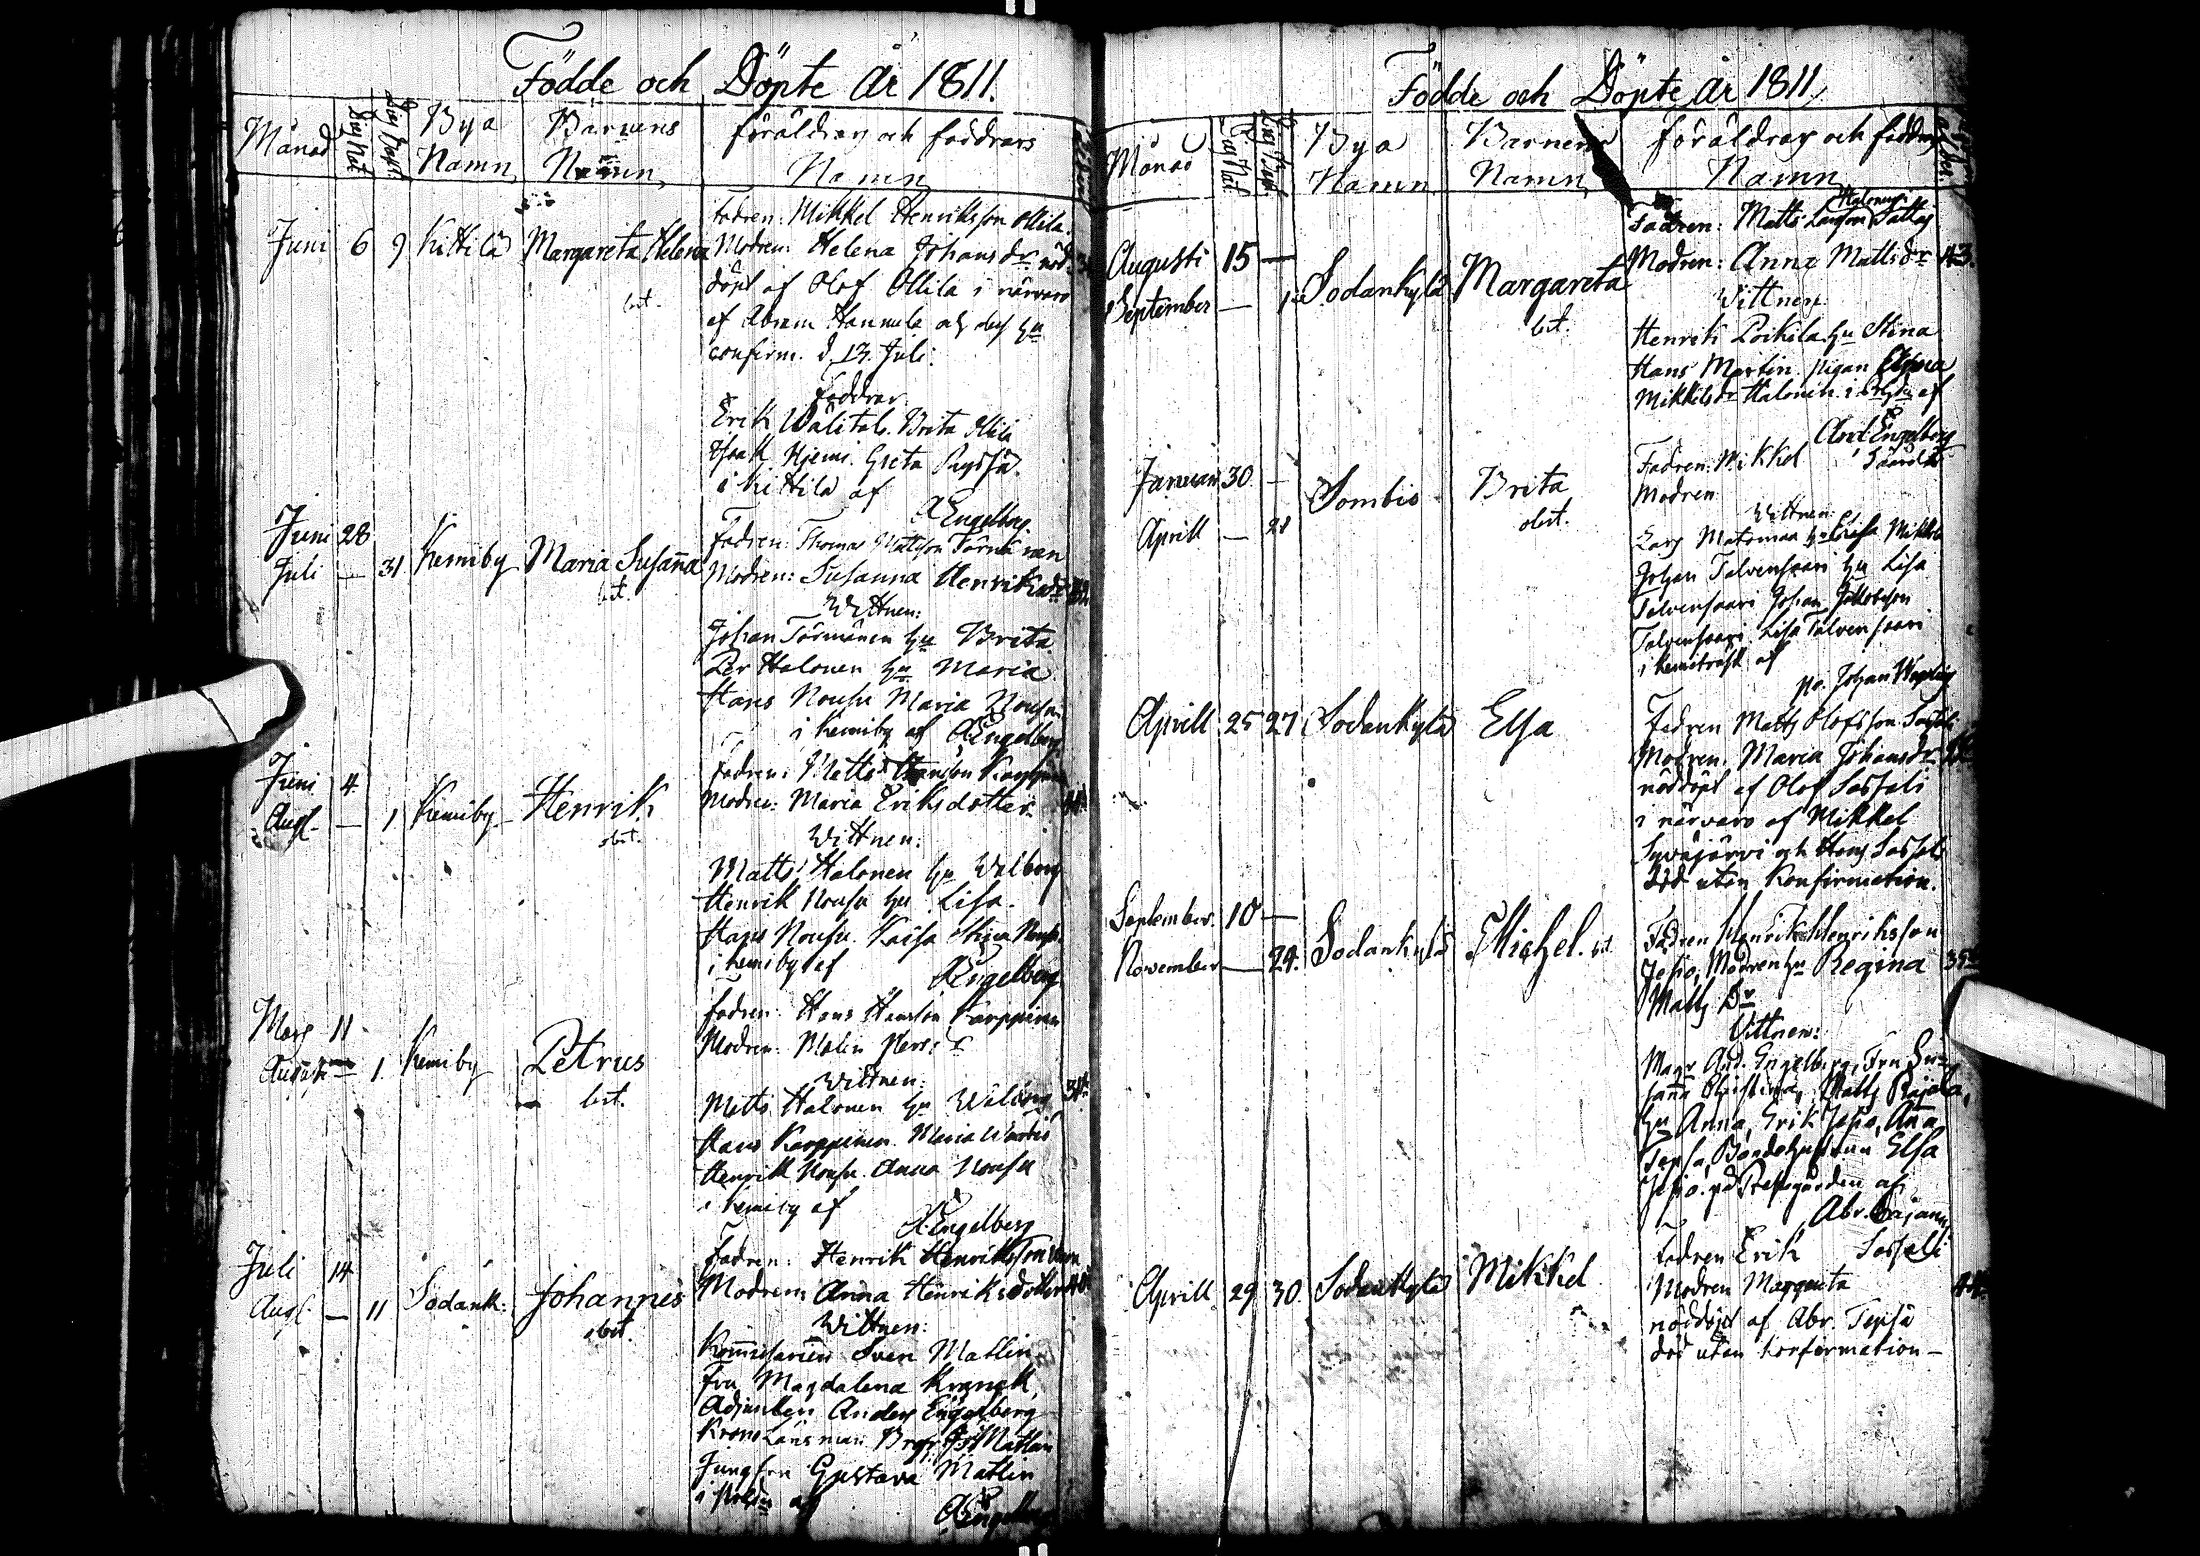 Födde och Döpte År 1811.
Månad
Bya Namn
Barnens Namn
föräldrars och faddrars Namn
Juni 6 9 Kittilä Margareta Helena
Fadren: Mikkel Henriksson Ollila.
Modren: Helena Johansdr nöd-
döpt af Olof Ollila i närvaro
af Abram Hannula och dess hu
confirm. d. 13. Juli:
Faddrar
Erik Wälitalo. Brita Ollila
Isaak Niemi. Greta
i Kittilä af
AEngelberg.
Juni 28
Juli — 31 Kemiby Maria Susanna
Fadren: Thomas Mattsson Törmänen
Modren: Susanna Henriksdr
Wittnen:
Johan Törmänen hu Brita
Per Halonen hu Maria
Hans Nousu Maria Nousu
i Kemiby af AEngelberg
Juni 4
Aug. — 1 Kemiby Henrik
obit.
Fadren: Matts Hansson Karppinen
Modren: Maria Eriksdotter
Wittnen:
Matts Halonen hu Walborg
Henrik Nousu hu Lisa.
Hans Nousu. Kaisa Stina Nousu
i Kemiby af AEngelberg
Mars 11
Augusti — 1. Kemiby Petrus
Fadren: Hans Hansson Karppinen
Modren: Malin
Wittnen:
Matts Halonen hu Walborg
Hans Karppinen. Maria
Henrik Nousu. Anna Nousu
i Kemiby af
AEngelberg
Juli 14
Aug. — 11 Sodank: Johannes
obit.
Fadren: Henrik Henriksson
Modren: Anna Henriksdotter
Wittnen:
Kommissarien Sven Matlin
Fru Magdalena Kranck,
Adjunkten Anders Engelberg
Krono Länsman Matlin
Jungfru Gustava Matlin
AEngelberg
Födde och Döpte År 1811,
Månad
Bya Namn
Barnens Namn
föräldrars och faddrars Namn
Augusti 15 —
September — 1 Sodankylä Margareta
Fadren: Matts Larsson
Modren: Anna Mattsdr 43.
Wittnen
Henrik Poikela hu Stina
Hans Martin. pigan
Mikkelsdr Halonen af
And Engelberg
Januari 30 —
Aprill — 21 Sombio Brita
obit.
Fadren: Mikkel
Modren
Wittnen:
Lars Matomaa
Johan Talvensaari hu Lisa
Talvensaari Johan Jakobsson
Talvensaari Lisa Talvensaari
i Kemiträsk af
Johan
Aprill 25 27 Sodankylä Elsa
Fadren Matts Olofsson Sassali
Modren. Maria Johansdr
nöddöpt af Olof Sassali
i närvaro af Mikkel
Syväjärvi och Hans Sassali
död utan Konfirmation.
September. 10 —
November — 24. Sodankylä Michel.
Fadren Henrik Henriksson
Jesio, Modren hu Regina
Matts Dr
Vittnen:
Magr And. Engelberg, Fru Su-
sanna Christina, Matts Rajala,
hu Anna, Erik Jesio, Anna
Tepsa, Bondehustrun Elsa
Jesio. på Prestgården af
Abr. Cajanus
Aprill 29 30 Sodankylä Mikkel
Fadren Erik Sassali
Modren Margareta
nöddöpt af Abr. Tepsa
död utan Konfirmation —